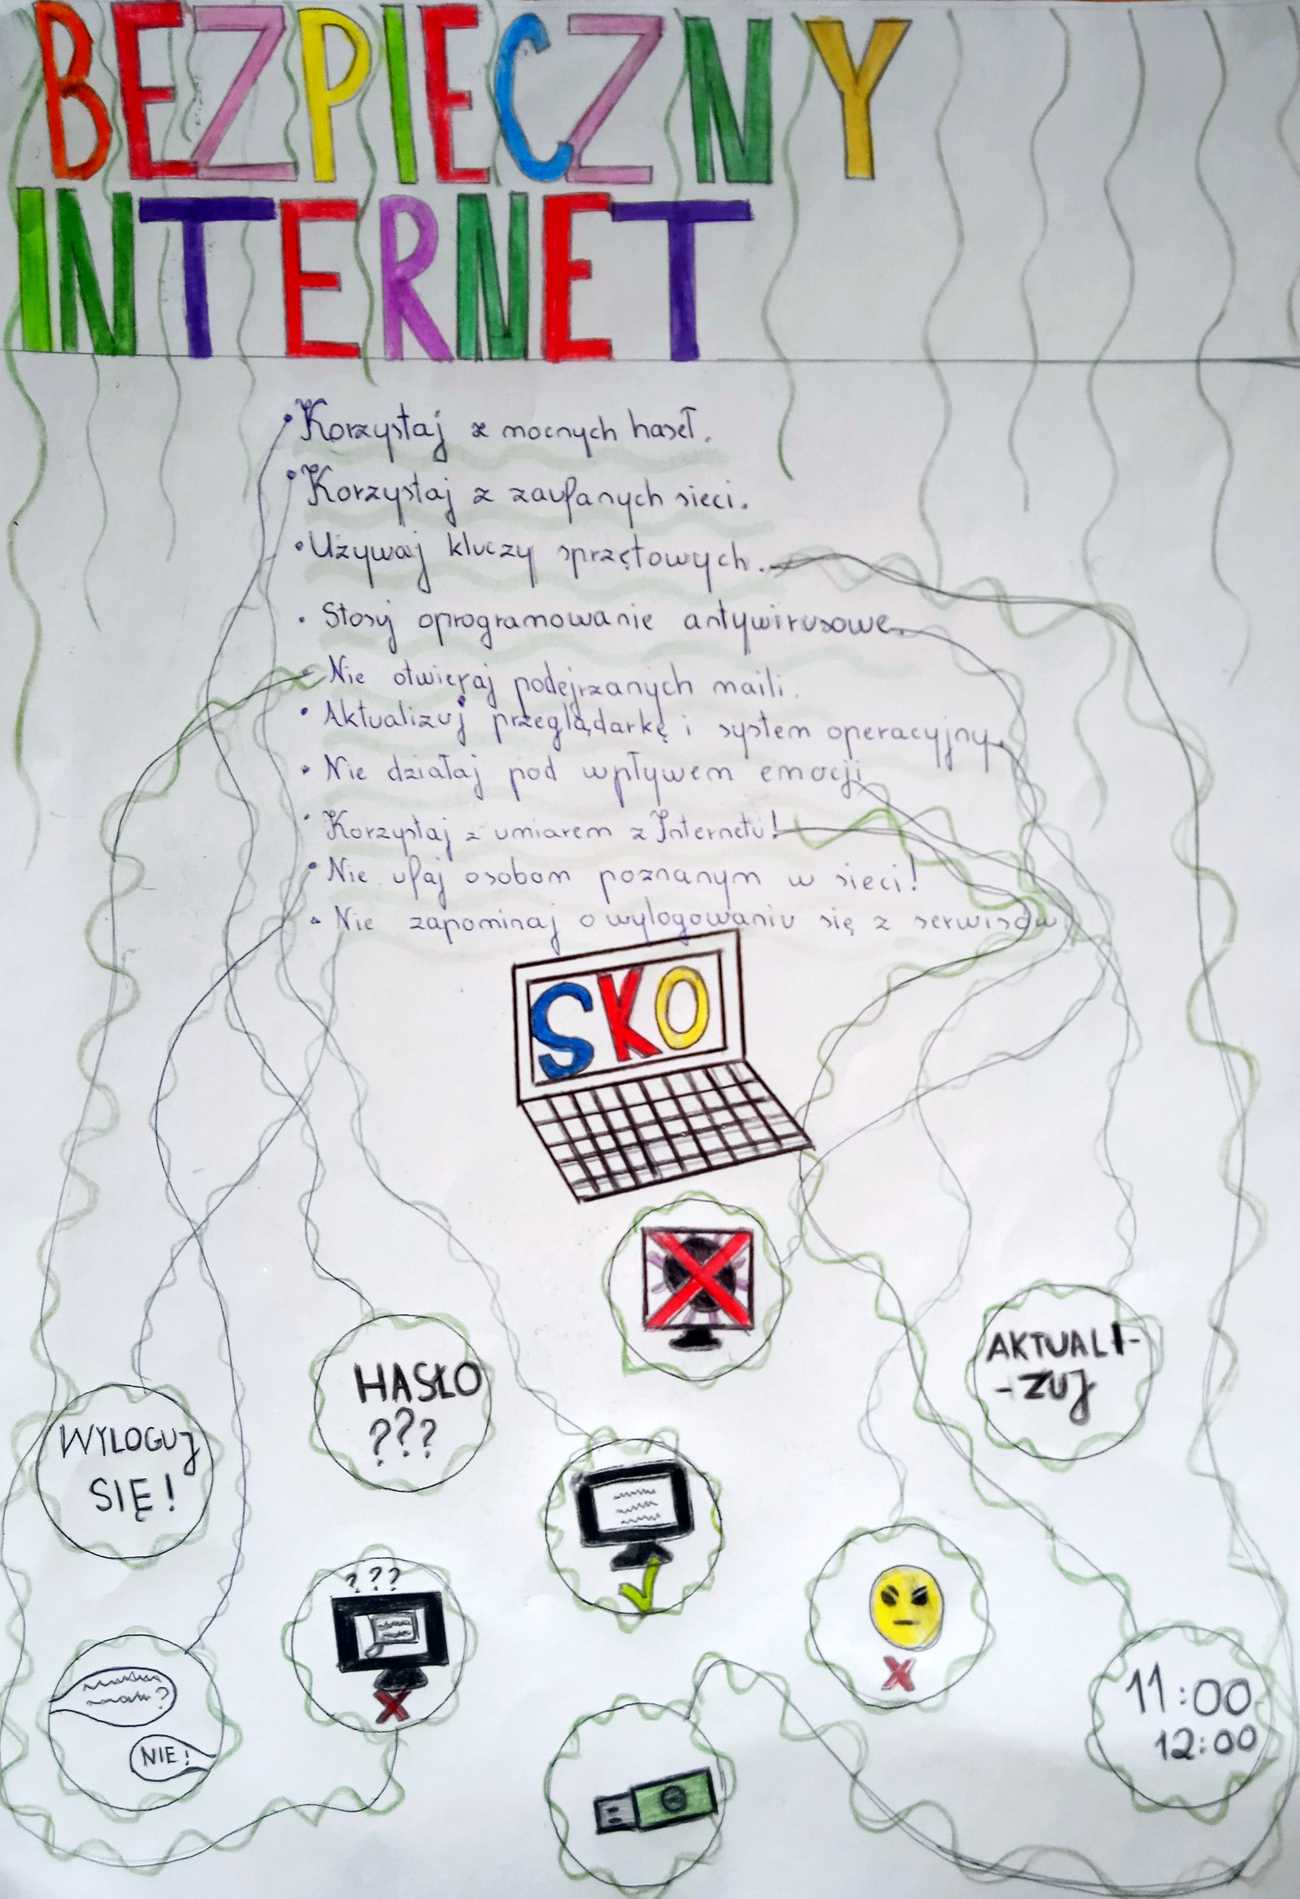 BEZPIECZNY
INTERNET
• Korzystaj z mocnych haseł.
• Korzystaj z zaufanych sieci.
• Używaj kluczy sprzętowych.
• Stosuj oprogramowanie antywirusowe.
Nie otwieraj podejrzanych maili.
• Aktualizuj przeglądarkę i system operacyjny.
• Nie działaj pod wpływem emocji
• Korzystaj z umiarem z Internetu!
• Nie ufaj osobom poznanym w sieci!
• Nie zapominaj o wylogowaniu się z serwisów
SKO
AKTUALI-
-ZUJ
HASŁO
???
WYLOGUJ
SIĘ!
???
?
NIE!
11:00
12:00